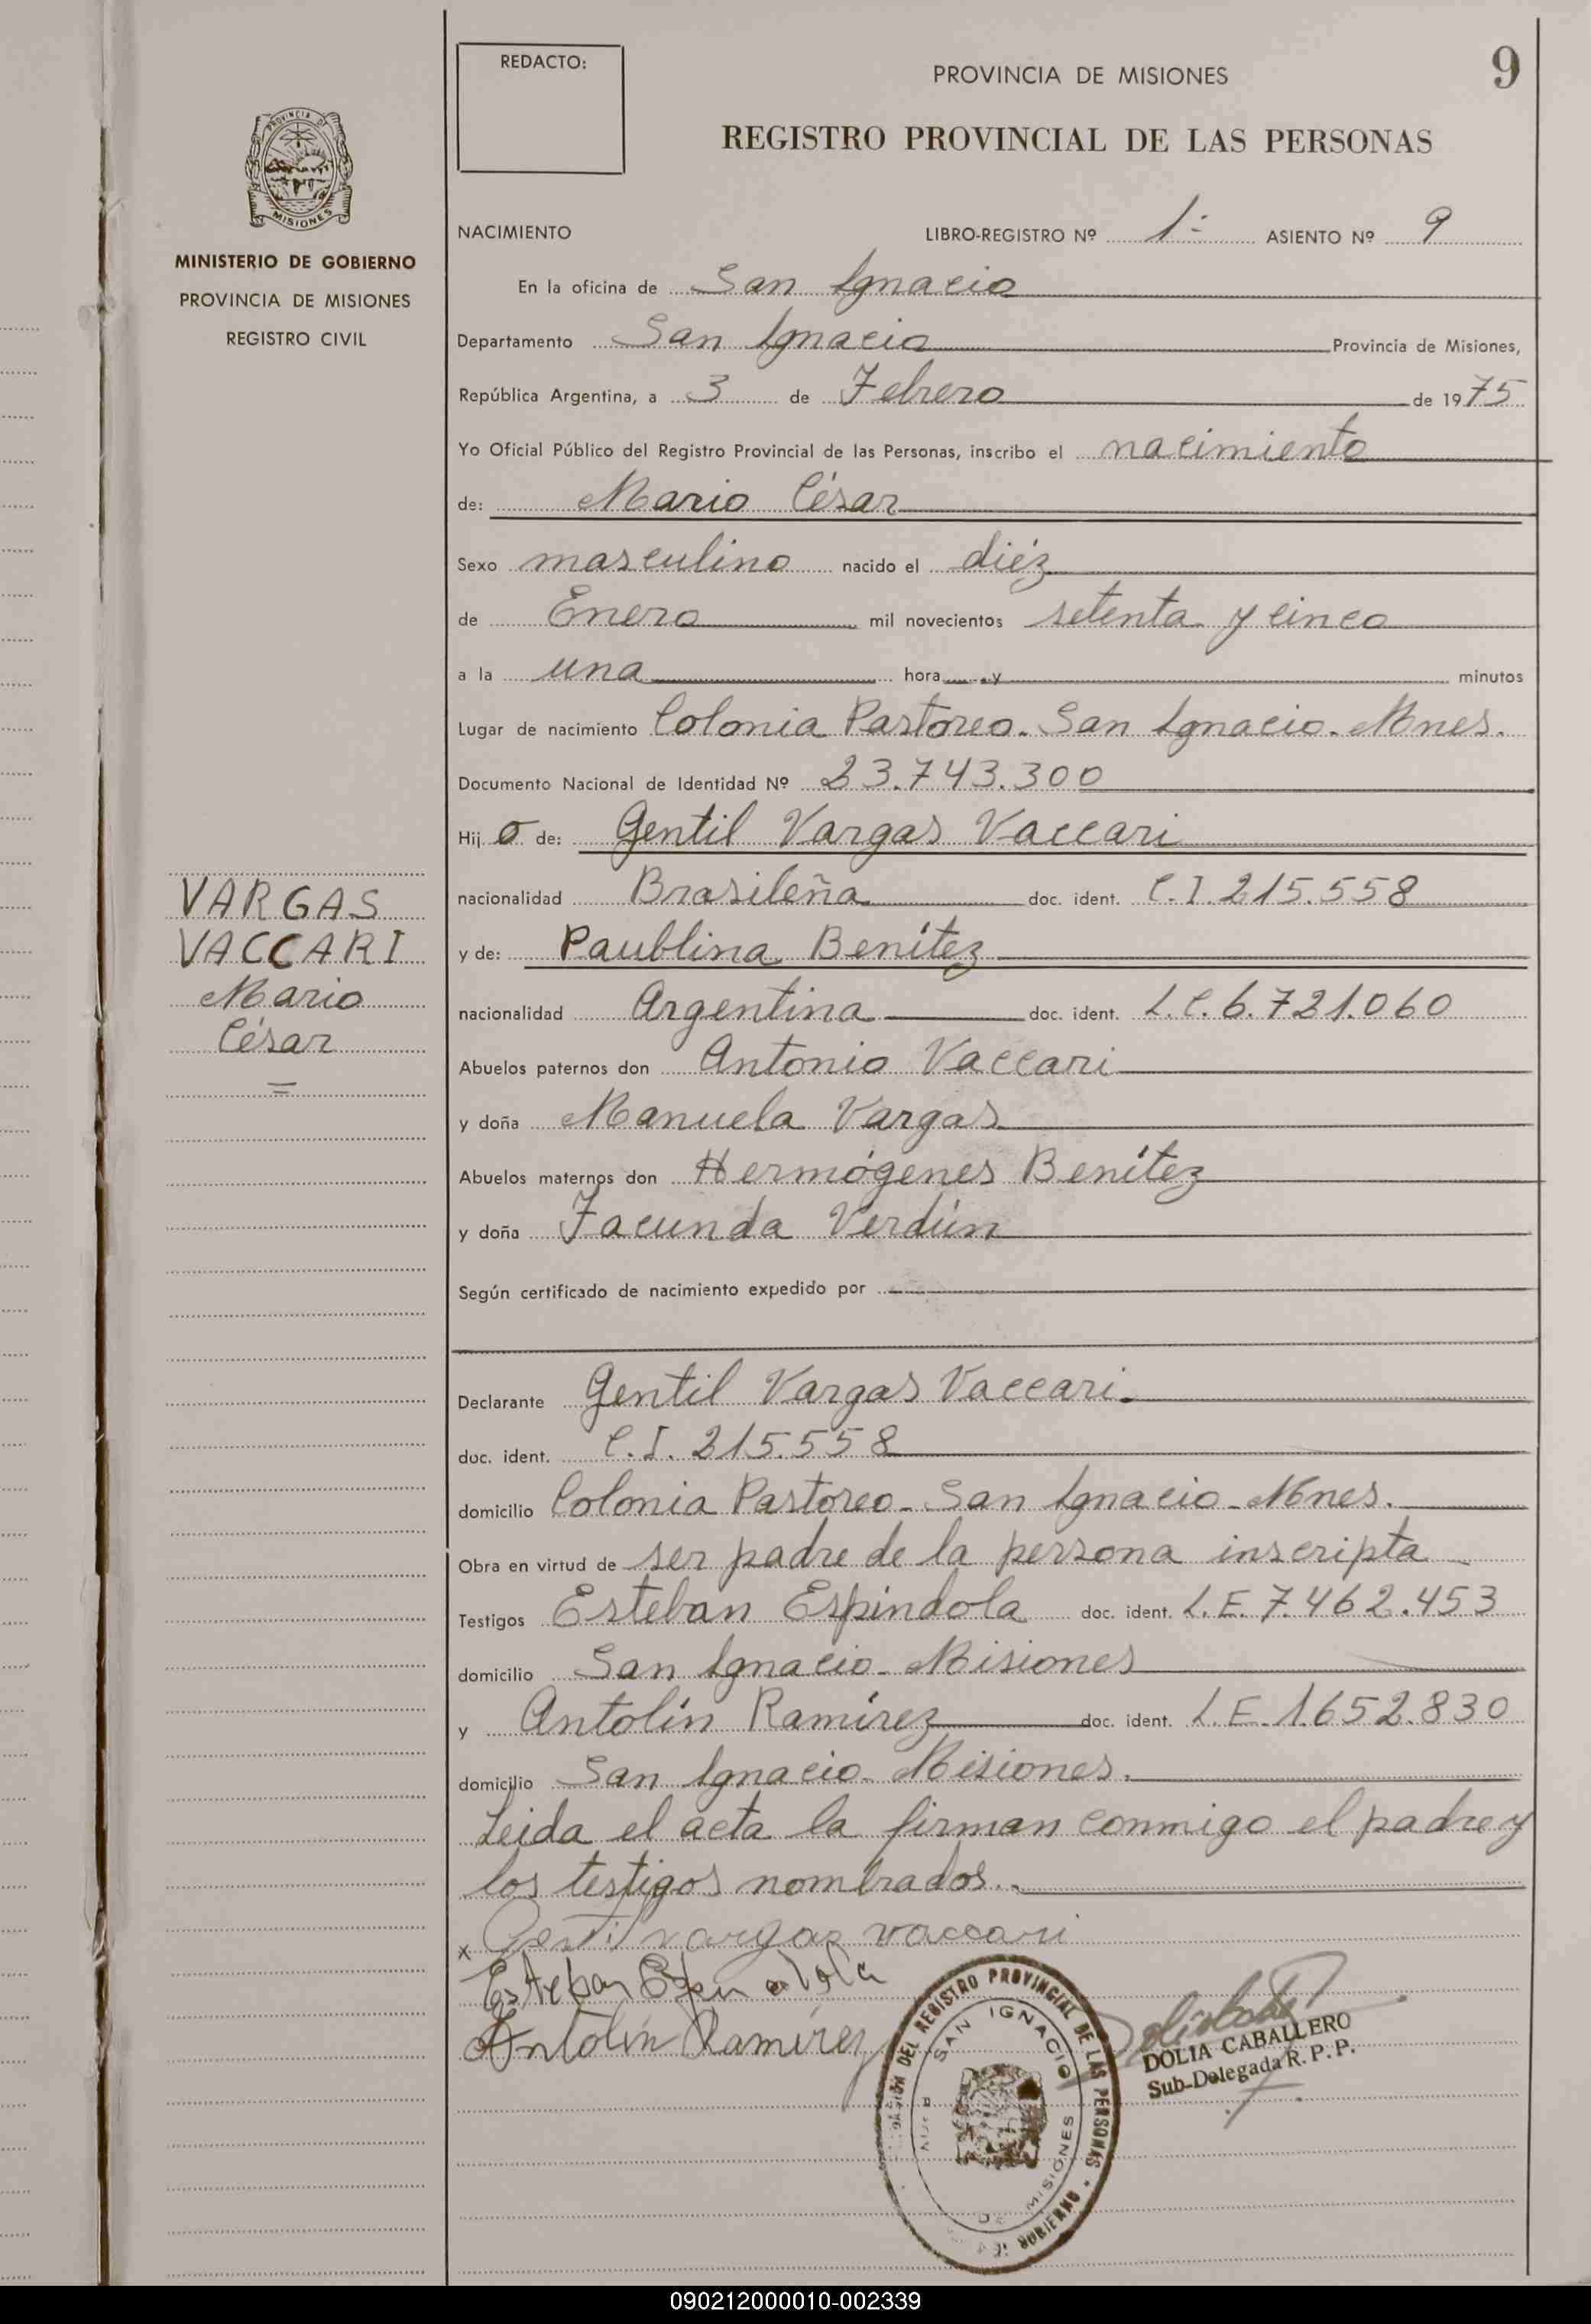 REDACTO:
PROVINCIA DE MISIONES
9
REGISTRO PROVINCIAL DE LAS PERSONAS
PROVINCIA DE
MISIONES
MINISTERIO DE GOBIERNO
PROVINCIA DE MISIONES
REGISTRO CIVIL
VARGAS
VACCARI
Mario
César
=
NACIMIENTO LIBRO-REGISTRO Nº 1- ASIENTO Nº 9
En la oficina de San Ignacio
Departamento San Ignacio Provincia de Misiones,
República Argentina, a 3 de Febrero de 1975
Yo Oficial Público del Registro Provincial de las Personas, inscribo el nacimiento
de: Mario César
Sexo masculino nacido el diéz
de Enero mil novecientos setenta y cinco
a la una hora y minutos
Lugar de nacimiento Colonia Pastoreo - San Ignacio - Mnes.
Documento Nacional de Identidad Nº 23.743.300
Hij o de: Gentil Vargas Vaccari
nacionalidad Brasileña doc. ident. C.I. 215.558
y de: Paublina Benítez
nacionalidad Argentina doc. ident. L.C. 6.721.060
Abuelos paternos don Antonio Vaccari
y doña Manuela Vargas
Abuelos maternos don Hermógenes Benítez
y doña Facunda Verdún
Según certificado de nacimiento expedido por
Declarante Gentil Vargas Vaccari.
doc. ident. C.I. 215.558
domicilio Colonia Pastoreo - San Ignacio - Mnes.
Obra en virtud de ser padre de la persona inscripta
Testigos Esteban Espíndola doc. ident. L.E. 7.462.453
domicilio San Ignacio - Misiones
y Antolín Ramírez doc. ident. L.E. 1.652.830
domicilio San Ignacio - Misiones.
Leida el acta la firman conmigo el padre y
los testigos nombrados..
x Gentil vargas vaccari
Esteban Espindola
Antolín Ramírez
DEL REGISTRO PROVINCIAL DE LAS PERSONAS
SAN IGNACIO
DE MISIONES
GOBIERNO
DOLIA CABALLERO
Sub-Delegada R. P. P.
090212000010-002339